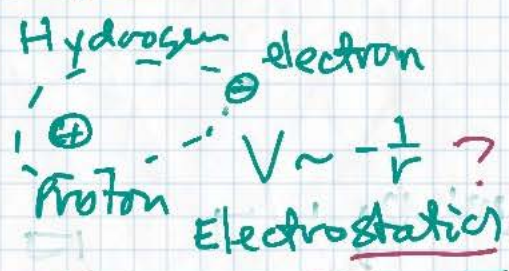 Hydrogen
electron
⊖
⊕
V ~ -1/r ?
Proton
Electrostatics